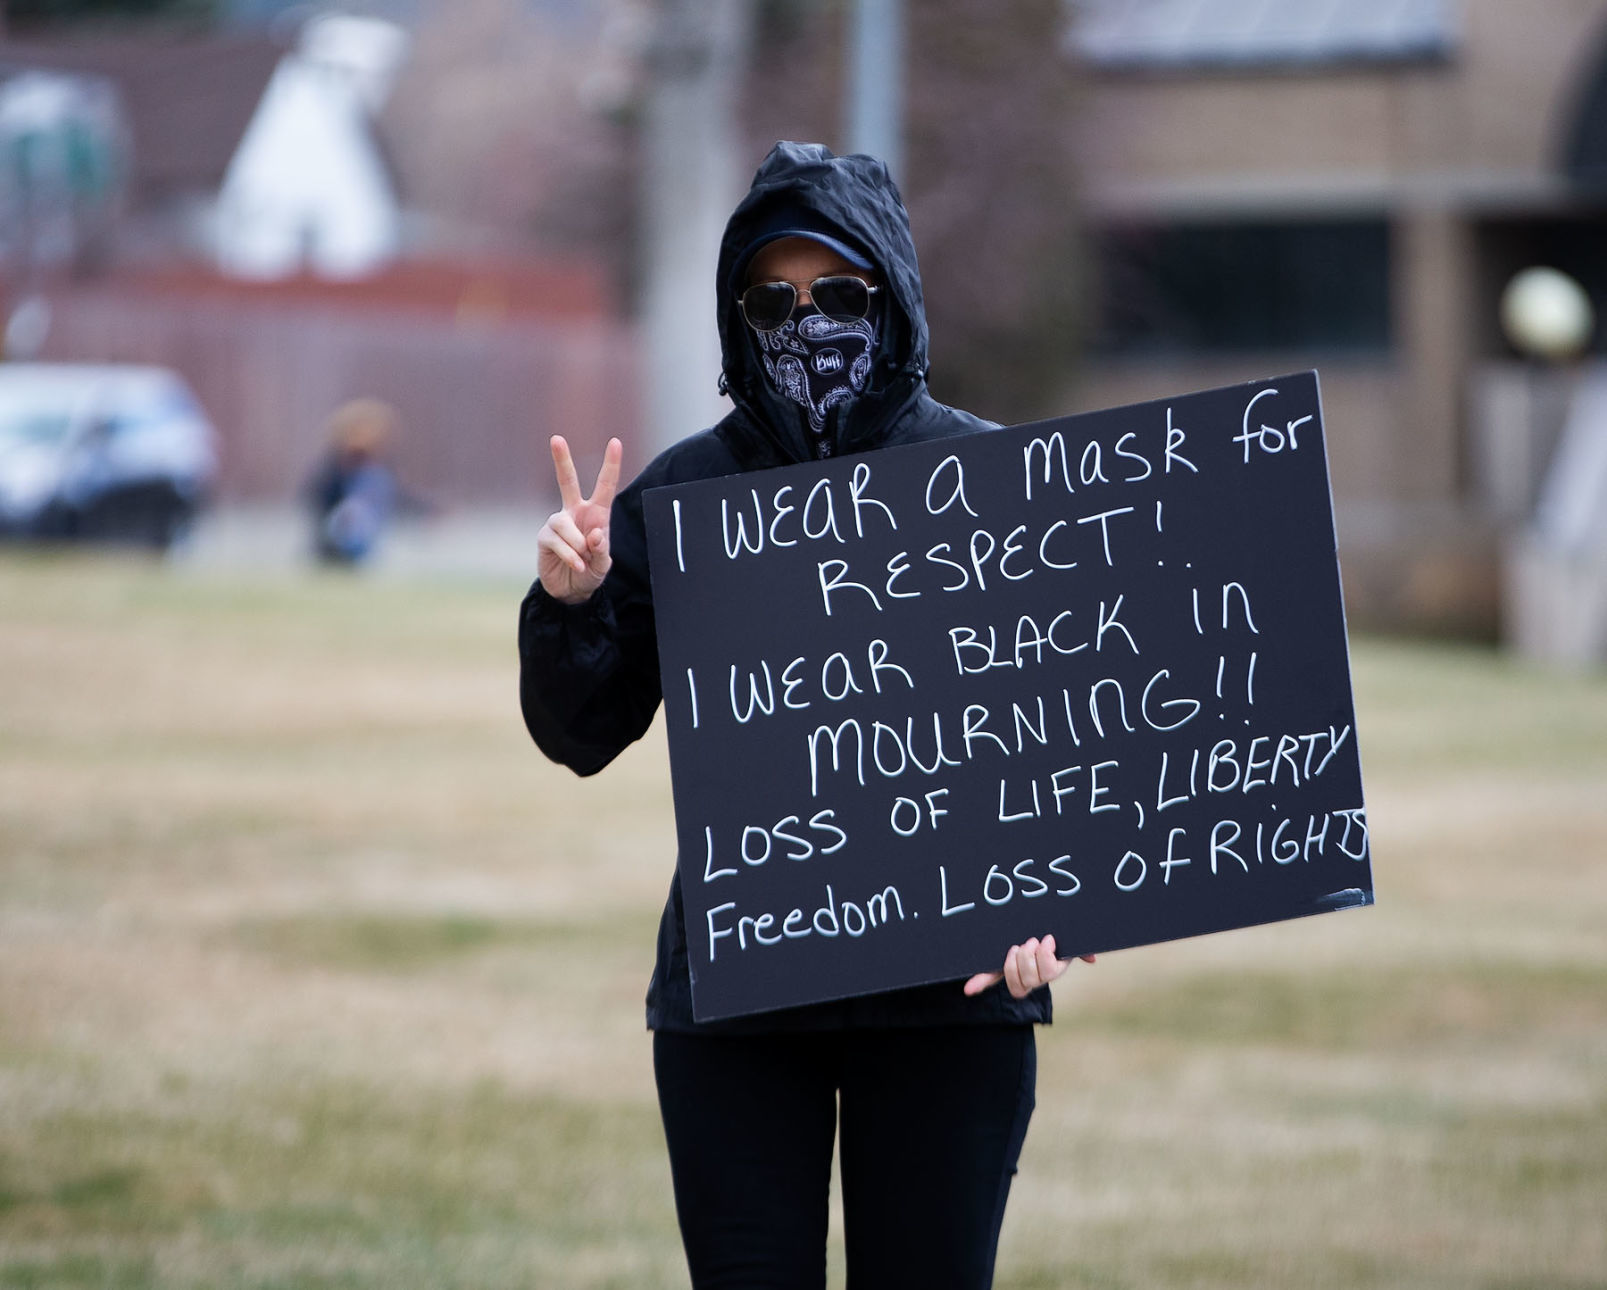 Buff
I WEAR A MASK for
RESPECT!.
I WEAR BLACK in
MOURNING!!
LOSS OF LIFE, LIBERTY
Freedom. LOSS of RIGHTS